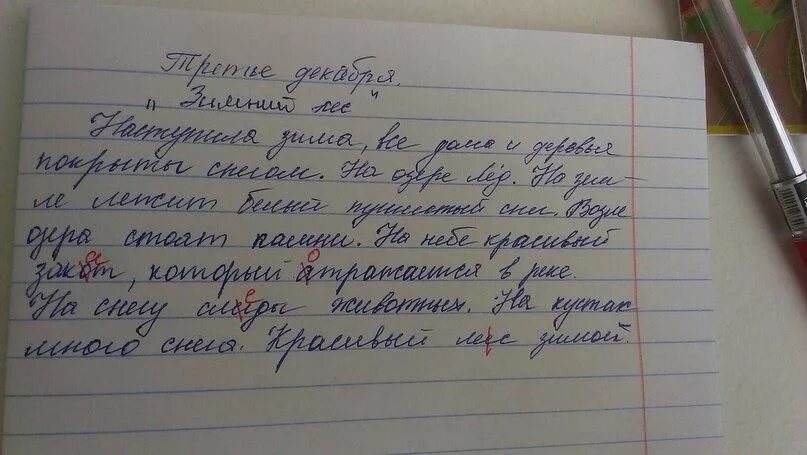 Третье декабря.
„Зимний лес"
Наступила зима, все дома и деревья
покрыты снегом. На озере лёд. На зем-
ле лежит белый пушистый снег. Возле
озера стоят камни. На небе красивый
закот, который атражается в реке.
На снегу слиды животных. На кустах
много снега. Красивый лес зимой.